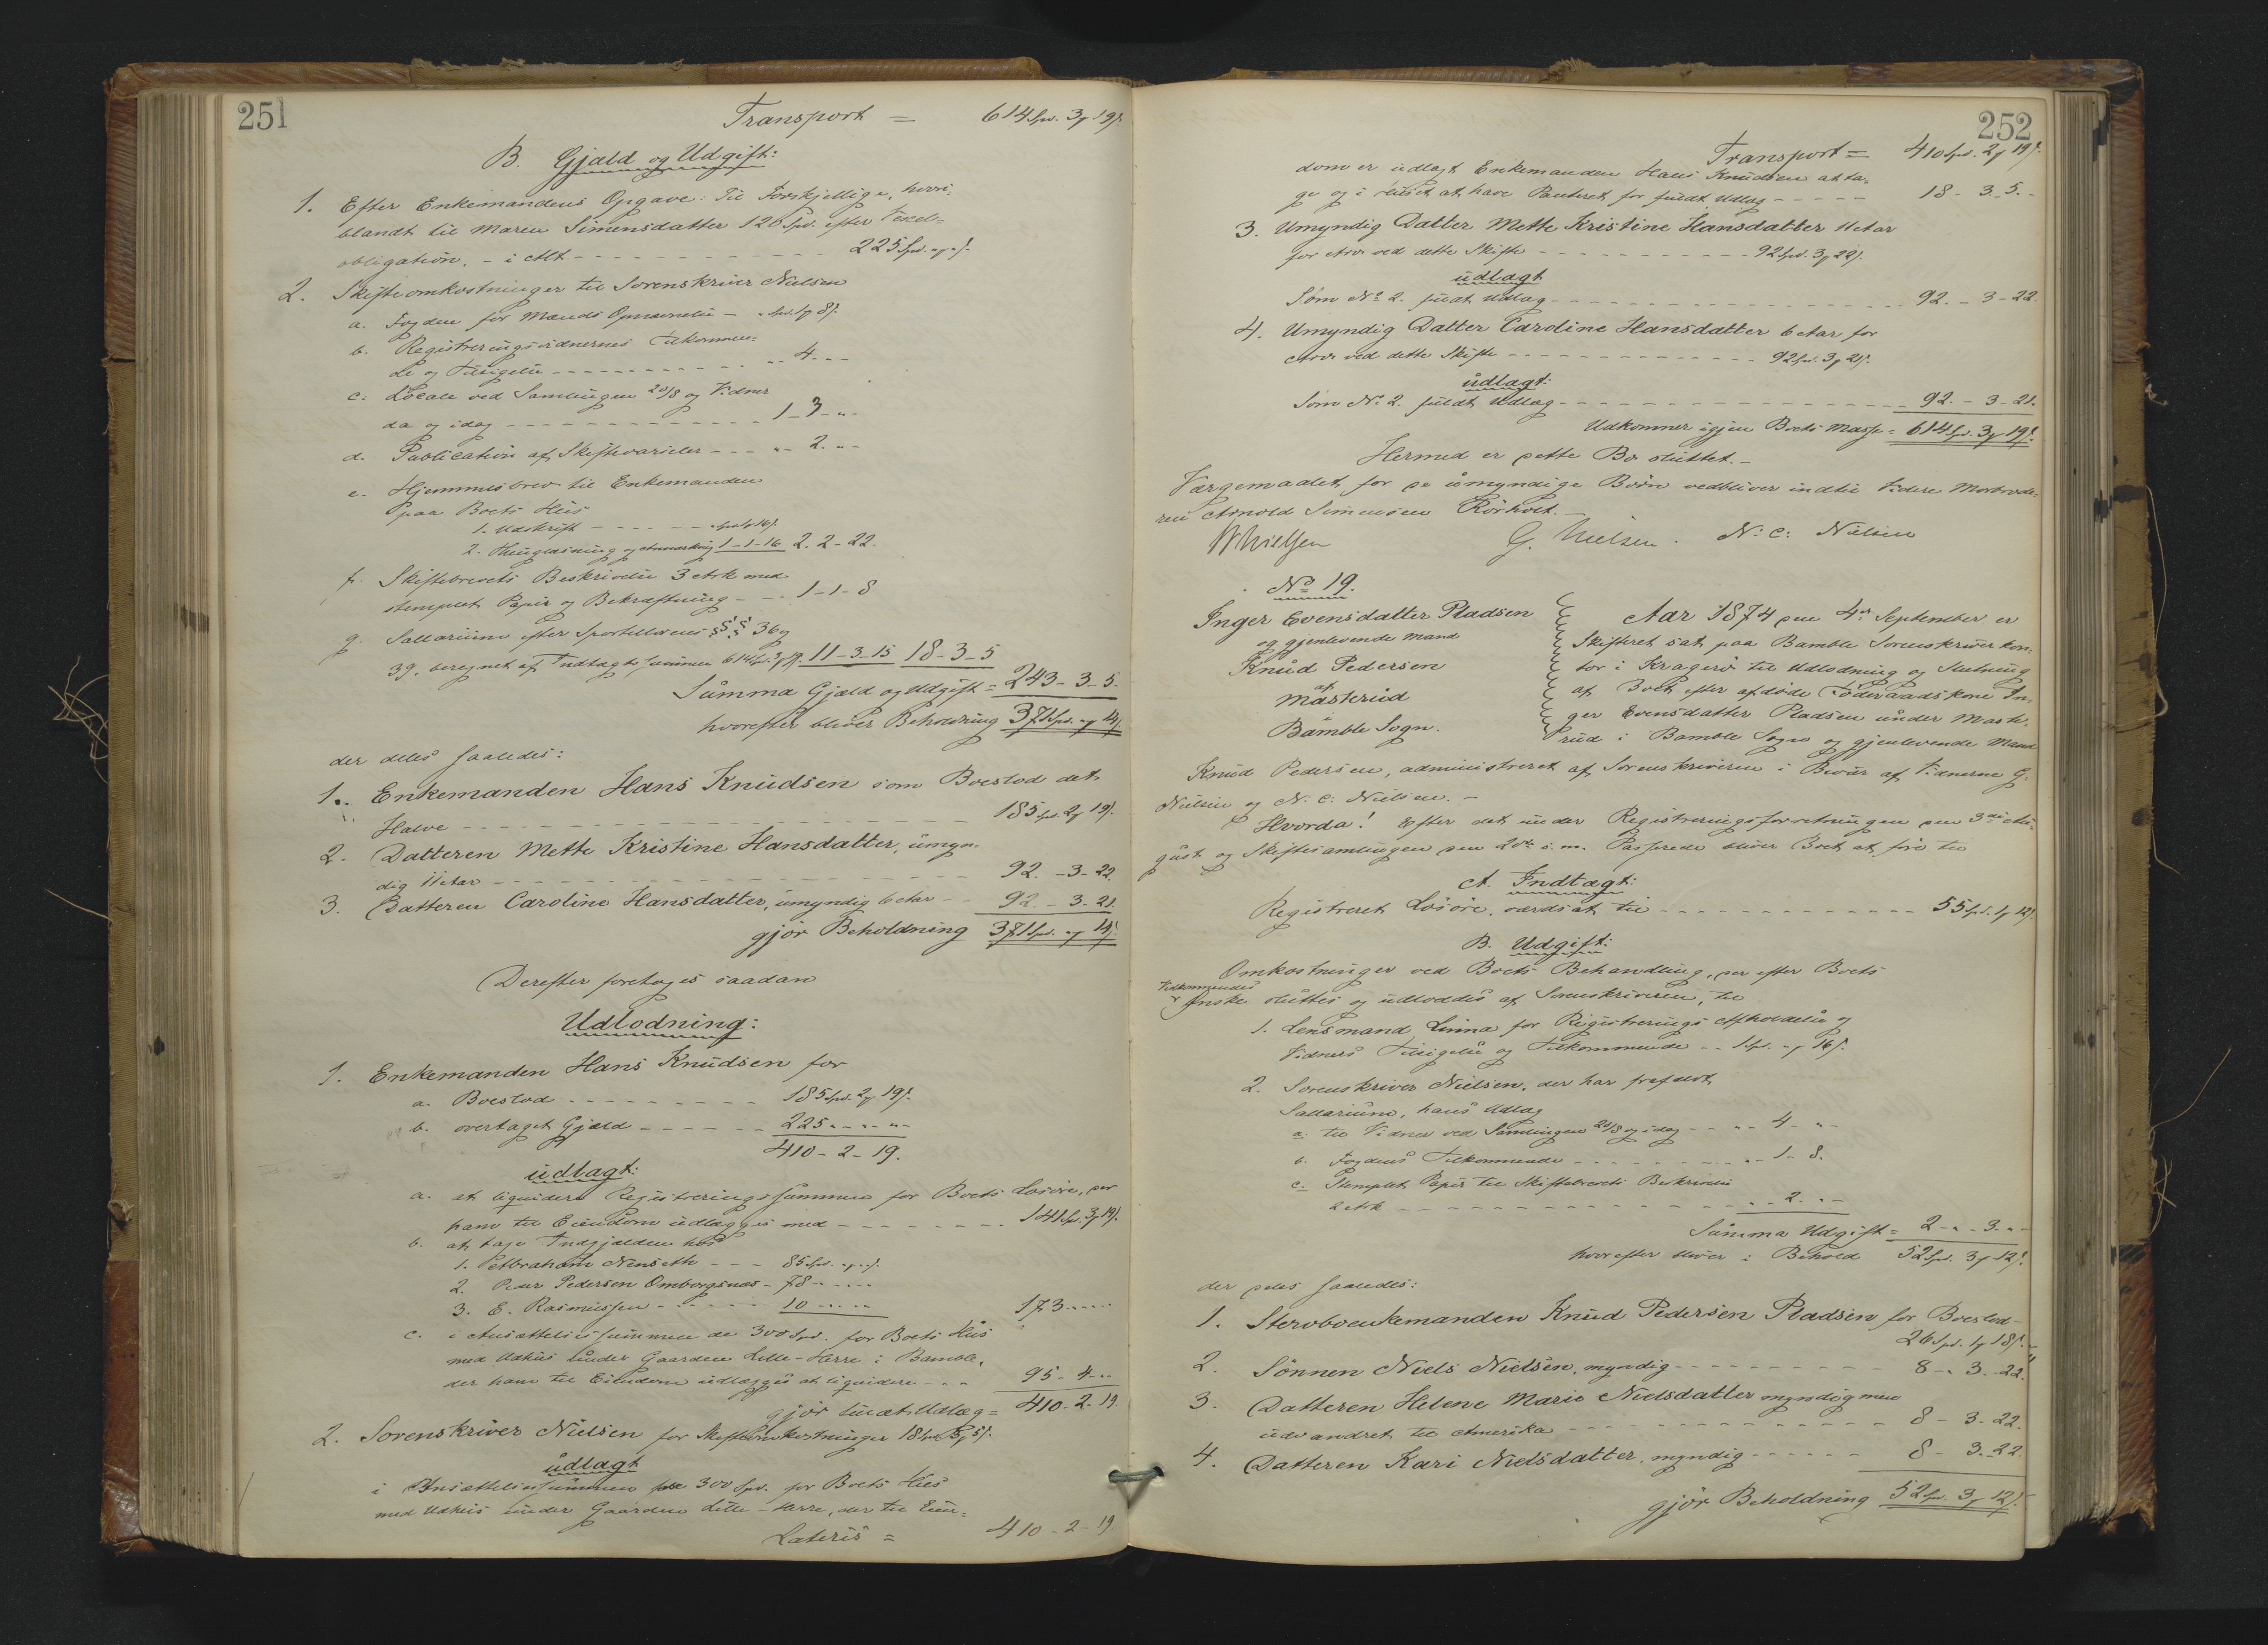 251
Transport = 614 Spd. 3 ƒ 19 ß.
B. Gjæld og Udgift:
1. Efter Enkemandens Opgave: Til Forskjellige, hvori-
blandt til Maren Simensdatter 120 Spd. efter Vexel-
obligation, - i Alt - - - 225 Spd. " ƒ " ß.
2. Skifteomkostninger til Sorenskriver Nielsen
a. Fogden for Mænds Opnævnelse - " Spd. 1 ƒ 8 ß.
b. Registreringsvidnernes Tilkommen-
de og Tilsigelse - - - " - 4 - " -
c. Locale ved Samlingen 20/8 og Vidner
da og idag - - - 1 - 3 - " -
d. Publication af Skiftevarsler - - - " - 2. " -
e. Hjemmelsbrev til Enkemanden
paa Boets Huus
1. Udskrift - - -
2. Thinglæsning og Anmærkning 1 - 1 - 16 2. 2 - 22.
f. Skiftebrevets Beskrivelse 3 Ark med
stemplet Papir og Bekræftning - - 1 - 1 - 8
g. Sallarium efter Sportellovens §§ 36 og
39, beregnet af Indtægts Summen 614 Spd. 3 ƒ 19. 11 - 3 - 15 18 - 3 - 5
Summa Gjæld og Udgift = 243 - 3 - 5.
hvorefter bliver Beholdning 371 Spd. " ƒ 14 ß.
der deles saaledes:
1. Enkemanden Hans Knudsen som Boeslod det
Halve - - - 185 Spd. 2 ƒ 19 ß.
2. Datteren Mette Kristine Hansdatter, umyn-
dig 11 Aar - - - 92. - 3 - 22.
3. Datteren Caroline Hansdatter, umyndig 6 Aar - - 92. - 3 - 21.
gjør Beholdning 371 Spd. " ƒ 14 ß.
Derefter foretoges saadan
Udlodning:
1. Enkemanden Hans Knudsen for
a. Boeslod - - - 185 Spd. 2 ƒ 19 ß.
b. overtaget Gjæld - - - 225 " - " - " -
410 - 2 - 19.
udlagt:
a. at liquidere Registreringssummen for Boets Løsøre, der
ham til Eiendom udlægges med - - - 141 Spd. 3 ƒ 19 ß.
b. at tage Indgjælden hos
1. Abraham Nenseth - - - 85 Spd. " ƒ " ß.
2. Peder Pedersen Omborgsnæs - 78 - " - "
3. E. Rasmussen - - - 10 - " - " 173 - " - "
c. i Ansættelsessummen de 300 Spd. for Boets Huus
med Udhuus under Gaarden Lille-Herre i Bamble,
der ham til Eiendom udlægges at liquidere - - - 95 - 4 - "
gjør fuldt Udlæg = 410 - 2 - 19
2. Sorenskriver Nielsen for Skifteomkostninger 18 Spd. 3 ƒ 5 ß.
udlagt
i Ansættelsessummen 300 Spd. for Boets Huus
med Udhuus under Gaarden Lille-Herre, der til Eien-
Lateris = 410 - 2 - 19.
252
Transport = 410 Spd. 2 ƒ 19 ß.
dom er udlagt Enkemanden Hans Knudsen at ta-
ge og i Huset at have Panteret for fuldt Udlæg - - - 18 - 3 - 5. -
3. Umyndig Datter Mette Kristine Hansdatter 11 Aar
for Arv ved dette Skifte - - - 92 Spd. 3 ƒ 22 ß.
udlagt
Som No 2. fuldt Udlæg - - - 92. - 3 - 22.
4. Umyndig Datter Caroline Hansdatter 6 Aar for
Arv ved dette Skifte - - - 92 Spd. 3 ƒ 21 ß.
udlagt:
Som No 2. fuldt Udlæg - - - 92. - 3 - 21.
Udkommer igjen Boets Masse = 614 Spd. 3 ƒ 19 ß.
Hermed er dette Bo sluttet. -
Værgemaalet for de umyndige Børn vedbliver indtil Videre Morbrode-
ren Arnold Simensen Rørholt. -
Nielsen G. Nielsen. N. C. Nielsen
No 19.
Inger Evensdatter Pladsen
og gjenlevende Mand
Knud Pedersen
af
Masterud
i
Bamble Sogn.
Aar 1874 den 4de September er
Skifteret sat paa Bamble Sorenskriverkon-
tor i Kragerø til Udlodning og Slutning
af Boet efter afdøde Føderaadskone In-
ger Evensdatter Pladsen under Maste-
rud i Bamble Sogn og gjenlevende Mand
Knud Pedersen, administreret af Sorenskriveren i Overvær af Vidnerne G.
Nielsen og N. C. Nielsen. -
Hvorda! Efter det under Registreringsforretningen den 3die Au-
gust og Skiftesamlingen den 20de s. m. Passerede bliver Boet at føre til
A. Indtægt:
Registreret Løsøre, værdsat til - - - 55 Spd. 1 ƒ 12 ß.
B. Udgift:
Omkostninger ved Boets Behandling, der efter Boets
Vedkommendes
Ønske sluttes og udloddes af Sorenskriveren, til
1. Lensmand Linna for Registrerings Afholdelse og
Vidners Tilsigelse og Tilkommende - - 1 Spd. " ƒ 16 ß.
2. Sorenskriver Nielsen, der har frafaldt
Sallarium, hans Udlæg
a. til Vidner ved Samlingen 20/8 og idag - - " - 4 - " -
b. Fogdens Tilkommende - - - " - 1 - 8.
c. Stemplet Papir til Skiftebrevets Beskrivelse
2 Ark - - - " - 2. " -
Summa Udgift = 2 - " - 3 - " -
hvorefter bliver i Behold 52 Spd. 3 ƒ 12 ß.
der deles saaledes:
1. Stervboenkemanden Knud Pedersen Pladsen for Boeslod -
26 Spd. 1 ƒ 18 ß. -
2. Sønnen Niels Nielsen, myndig - - - 8 - 3 - 22.
3. Datteren Helene Marie Nielsdatter myndig men
udvandret til Amerika - - - 8 - 3 - 22.
4. Datteren Kari Nielsdatter, myndig - - - 8 - 3 - 22
gjør Beholdning 52 Spd. 3 ƒ 12 ß.